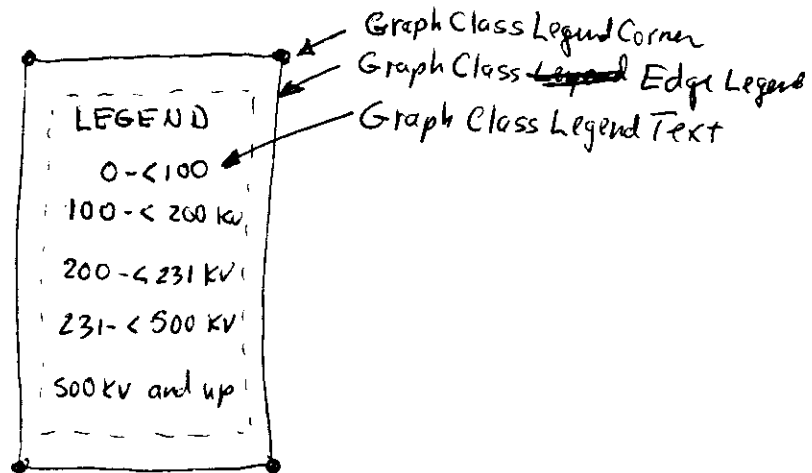 Graph Class Legend Corner
Graph Class Legend Edge Legend
Graph Class Legend Text
LEGEND
0-<100
100-<200 kv
200-<231 KV
231-<500 KV
500 KV and up